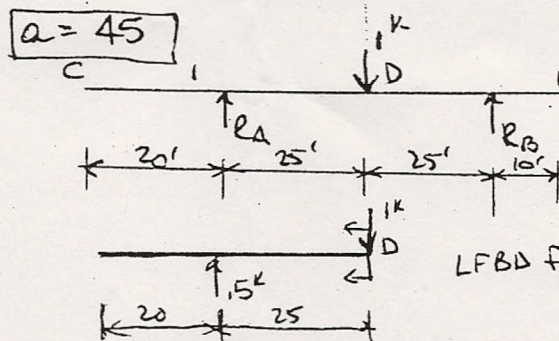 a = 45
1K
C 1 D
RA RB
20' 25' 25' 10'
1K
D
.5K
LFBD f
20 25